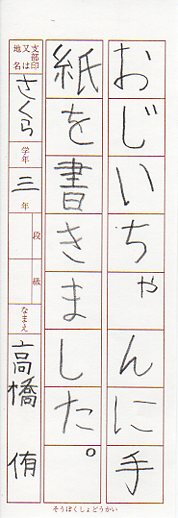 おじいちゃんに手
紙を書きました。
支部印又は地名 さくら 学年 三年 段 級 なまえ 高橋 侑
そうぼくしょどうかい